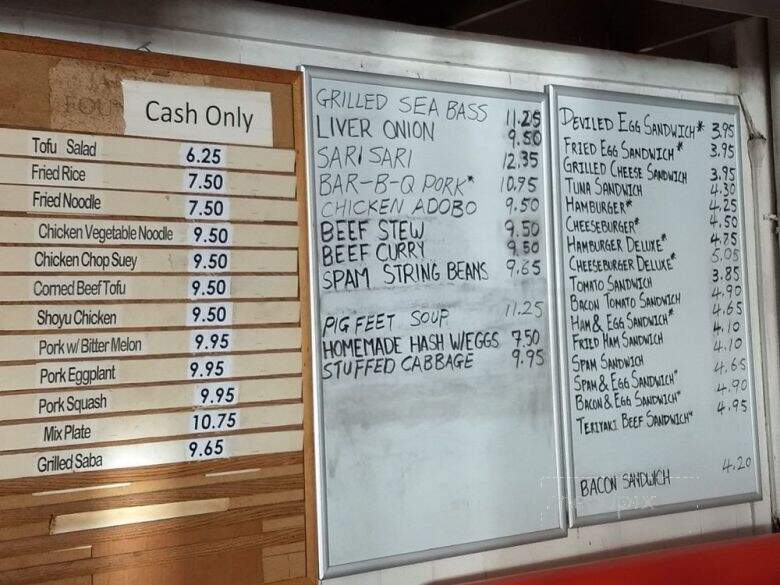 FOU
Cash Only
Tofu Salad 6.25
Fried Rice 7.50
Fried Noodle 7.50
Chicken Vegetable Noodle 9.50
Chicken Chop Suey 9.50
Corned Beef Tofu 9.50
Shoyu Chicken 9.50
Pork w/ Bitter Melon 9.95
Pork Eggplant 9.95
Pork Squash 9.95
Mix Plate 10.75
Grilled Saba 9.65
GRILLED SEA BASS 11.25
LIVER ONION 9.50
SARI SARI 12.35
BAR-B-Q PORK* 10.95
CHICKEN ADOBO 9.50
BEEF STEW 9.50
BEEF CURRY 9.50
SPAM STRING BEANS 9.65
PIG FEET SOUP 11.25
HOMEMADE HASH W/EGGS 7.50
STUFFED CABBAGE 9.95
DEVILED EGG SANDWICH* 3.95
FRIED EGG SANDWICH* 3.95
GRILLED CHEESE SANDWICH 3.95
TUNA SANDWICH 4.30
HAMBURGER* 4.25
CHEESEBURGER* 4.50
HAMBURGER DELUXE* 4.75
CHEESEBURGER DELUXE* 5.05
TOMATO SANDWICH 3.85
BACON TOMATO SANDWICH 4.90
HAM & EGG SANDWICH* 4.65
FRIED HAM SANDWICH 4.10
SPAM SANDWICH 4.10
SPAM & EGG SANDWICH* 4.65
BACON & EGG SANDWICH* 4.90
TERIYAKI BEEF SANDWICH* 4.95
BACON SANDWICH 4.20